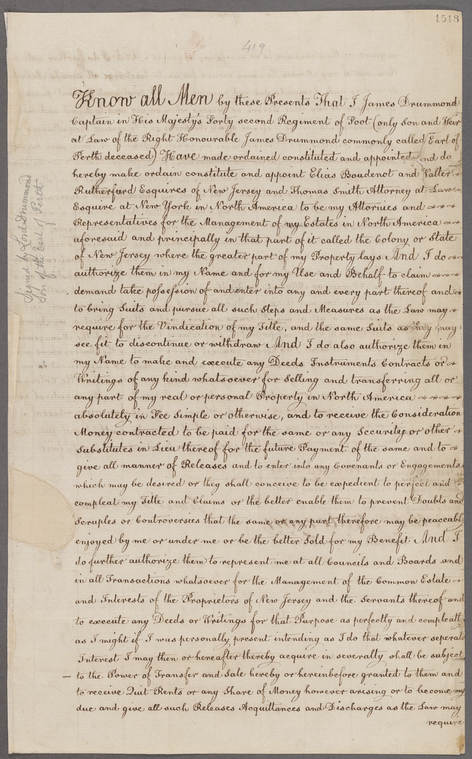 1518
419
Know all Men by these Presents That I James Drummond
Captain in His Majesty's Forty second Regiment of Foot (only Son and Heir
at Law of the Right Honourable James Drummond commonly called Earl of
Perth deceased) Have made ordained constituted and appointed and do
hereby make ordain constitute and appoint Elias Boudenot and Walter
Rutherfurd Esquires of New Jersey and Thomas Smith Attorney at Law
Esquire at New York in North America to be my Attornies and
Representatives for the Management of my Estates in North America
aforesaid and principally in that part of it called the Colony or State
of New Jersey where the greater part of my Property lays And I do
authorize them in my Name and for my Use and Behalf to claim
demand take possession of and enter into any and every part thereof and
to bring Suits and pursue all such Steps and Measures as the Law may
require for the Vindication of my Title, and the same Suits as they may
see fit to discontinue or withdraw And I do also authorize them in
my Name to make and execute any Deeds Instruments Contracts or
Writings of any kind whatsoever for Selling and transferring all or
any part of my real or personal Property in North America
absolutely in Fee Simple or otherwise, and to receive the Consideration
Money contracted to be paid for the same or any Security or other
Substitutes in Lieu thereof for the future Payment of the same and to
give all manner of Releases and to enter into any Covenants or Engagements
which may be desired or they shall conceive to be expedient to perfect and
compleat my Title and Claims or the better enable them to prevent Doubts and
Scruples or Controversies that the same or any part therefore may be peaceably
enjoyed by me or under me or be the better Sold for my Benefit And I
do further authorize them to represent me at all Councils and Boards and
in all Transactions whatsoever for the Management of the Common Estate
and Interests of the Proprietors of New Jersey and the Servants thereof and
to execute any Deeds or Writings for that Purpose as perfectly and compleatly
as I might if I was personally present intending as I do that whatever seperate
Interest I may then or hereafter thereby acquire in severalty shall be subject
to the Power of Transfer and Sale hereby or hereinbefore granted to them and
to receive Quit Rents or any Share of Money however arising or to become my
due and give all such Releases Acquittances and Discharges as the Law may
require
Signed by Lord Drummond
Son of the Earl of Perth